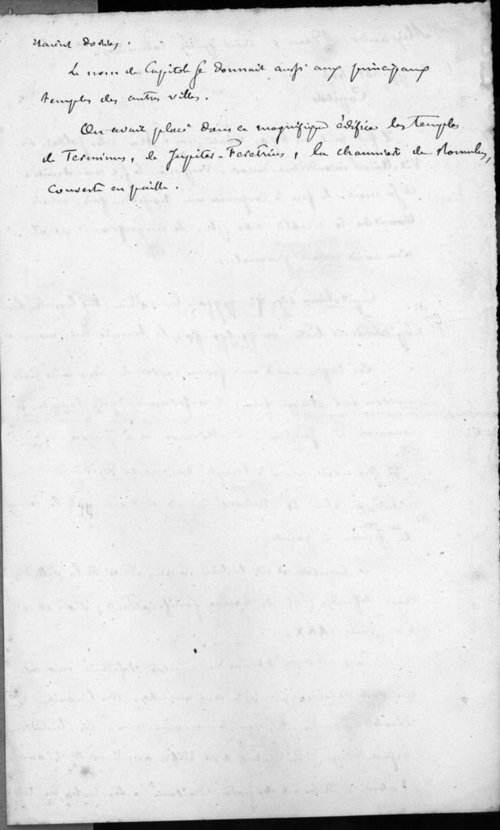 Le nom de Capitole se donnait aussi aux principaux
temples des autres villes.
On avait placé dans ce magnifique édifice les temples
de Terminus, de Jupiter-Férétrius, la chaumière de Romulus,
couverte en paille.